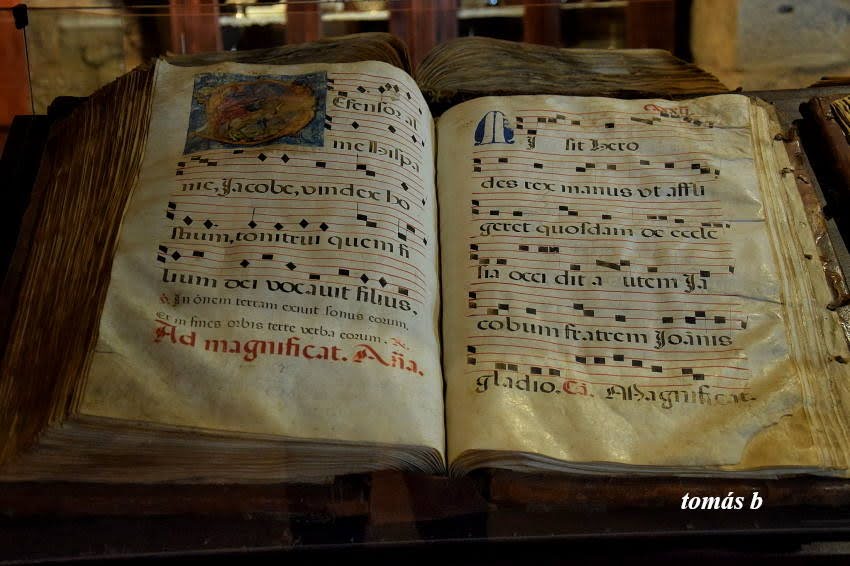 efensor al
me hispa
nie, Jacobe, vindex ho
stium, tonitrui quem fi
lium dei vocavit filius.
In ōnem terram exiuit sonus eorum.
Et in fines orbis terre verba eorum.
Ad magnificat. Aña.
Misit hero
des rex manus vt affli
geret quosdam de eccle
sia occi dit a utem Ja
cobum fratrem Joānis
gladio. Magnificat.
tomás b